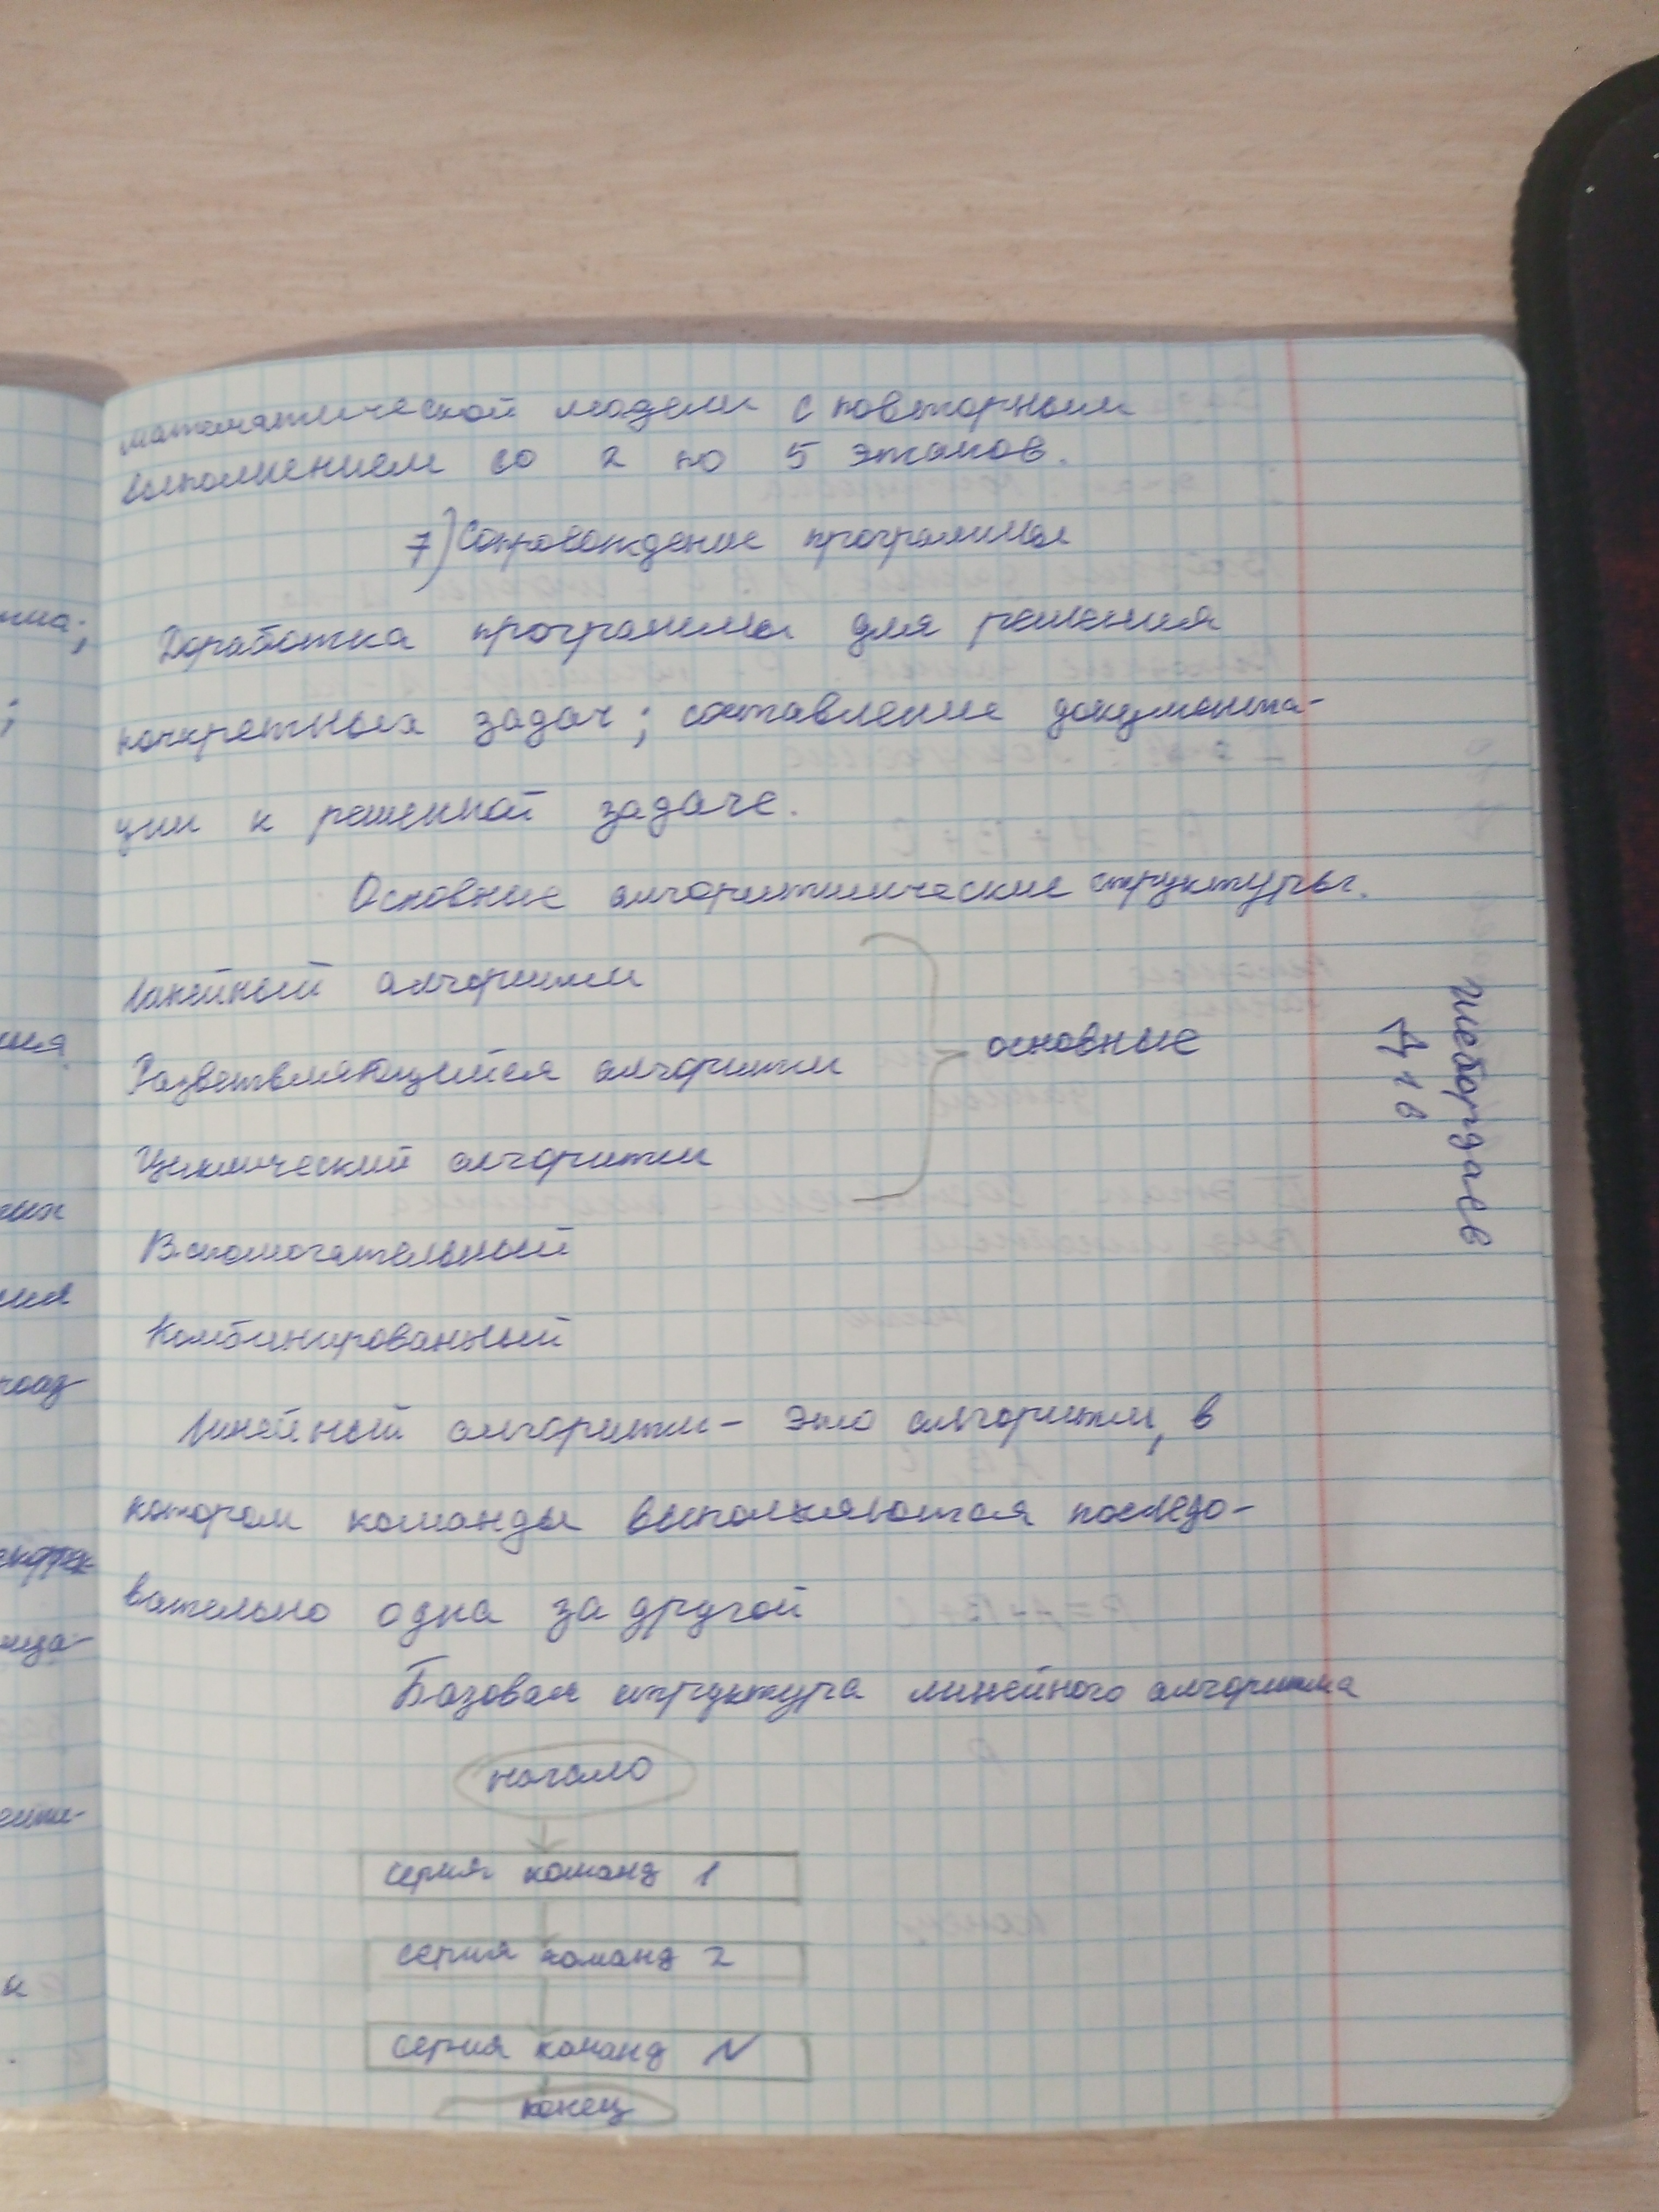 математической модели с повторным
выполнением со 2 по 5 этапов.
7) Сопровождение программы
Доработка программы для решения
конкретных задач; составление документа-
ции к решенной задаче.
Основные алгоритмические структуры.
Линейный алгоритм
Разветвляющийся алгоритм
основные
Циклический алгоритм
Вспомогательный
Комбинированный
Линейный алгоритм - это алгоритм, в
котором команды выполняются последо-
вательно одна за другой
Базовая структура линейного алгоритма
начало
серия команд 1
серия команд 2
серия команд N
конец